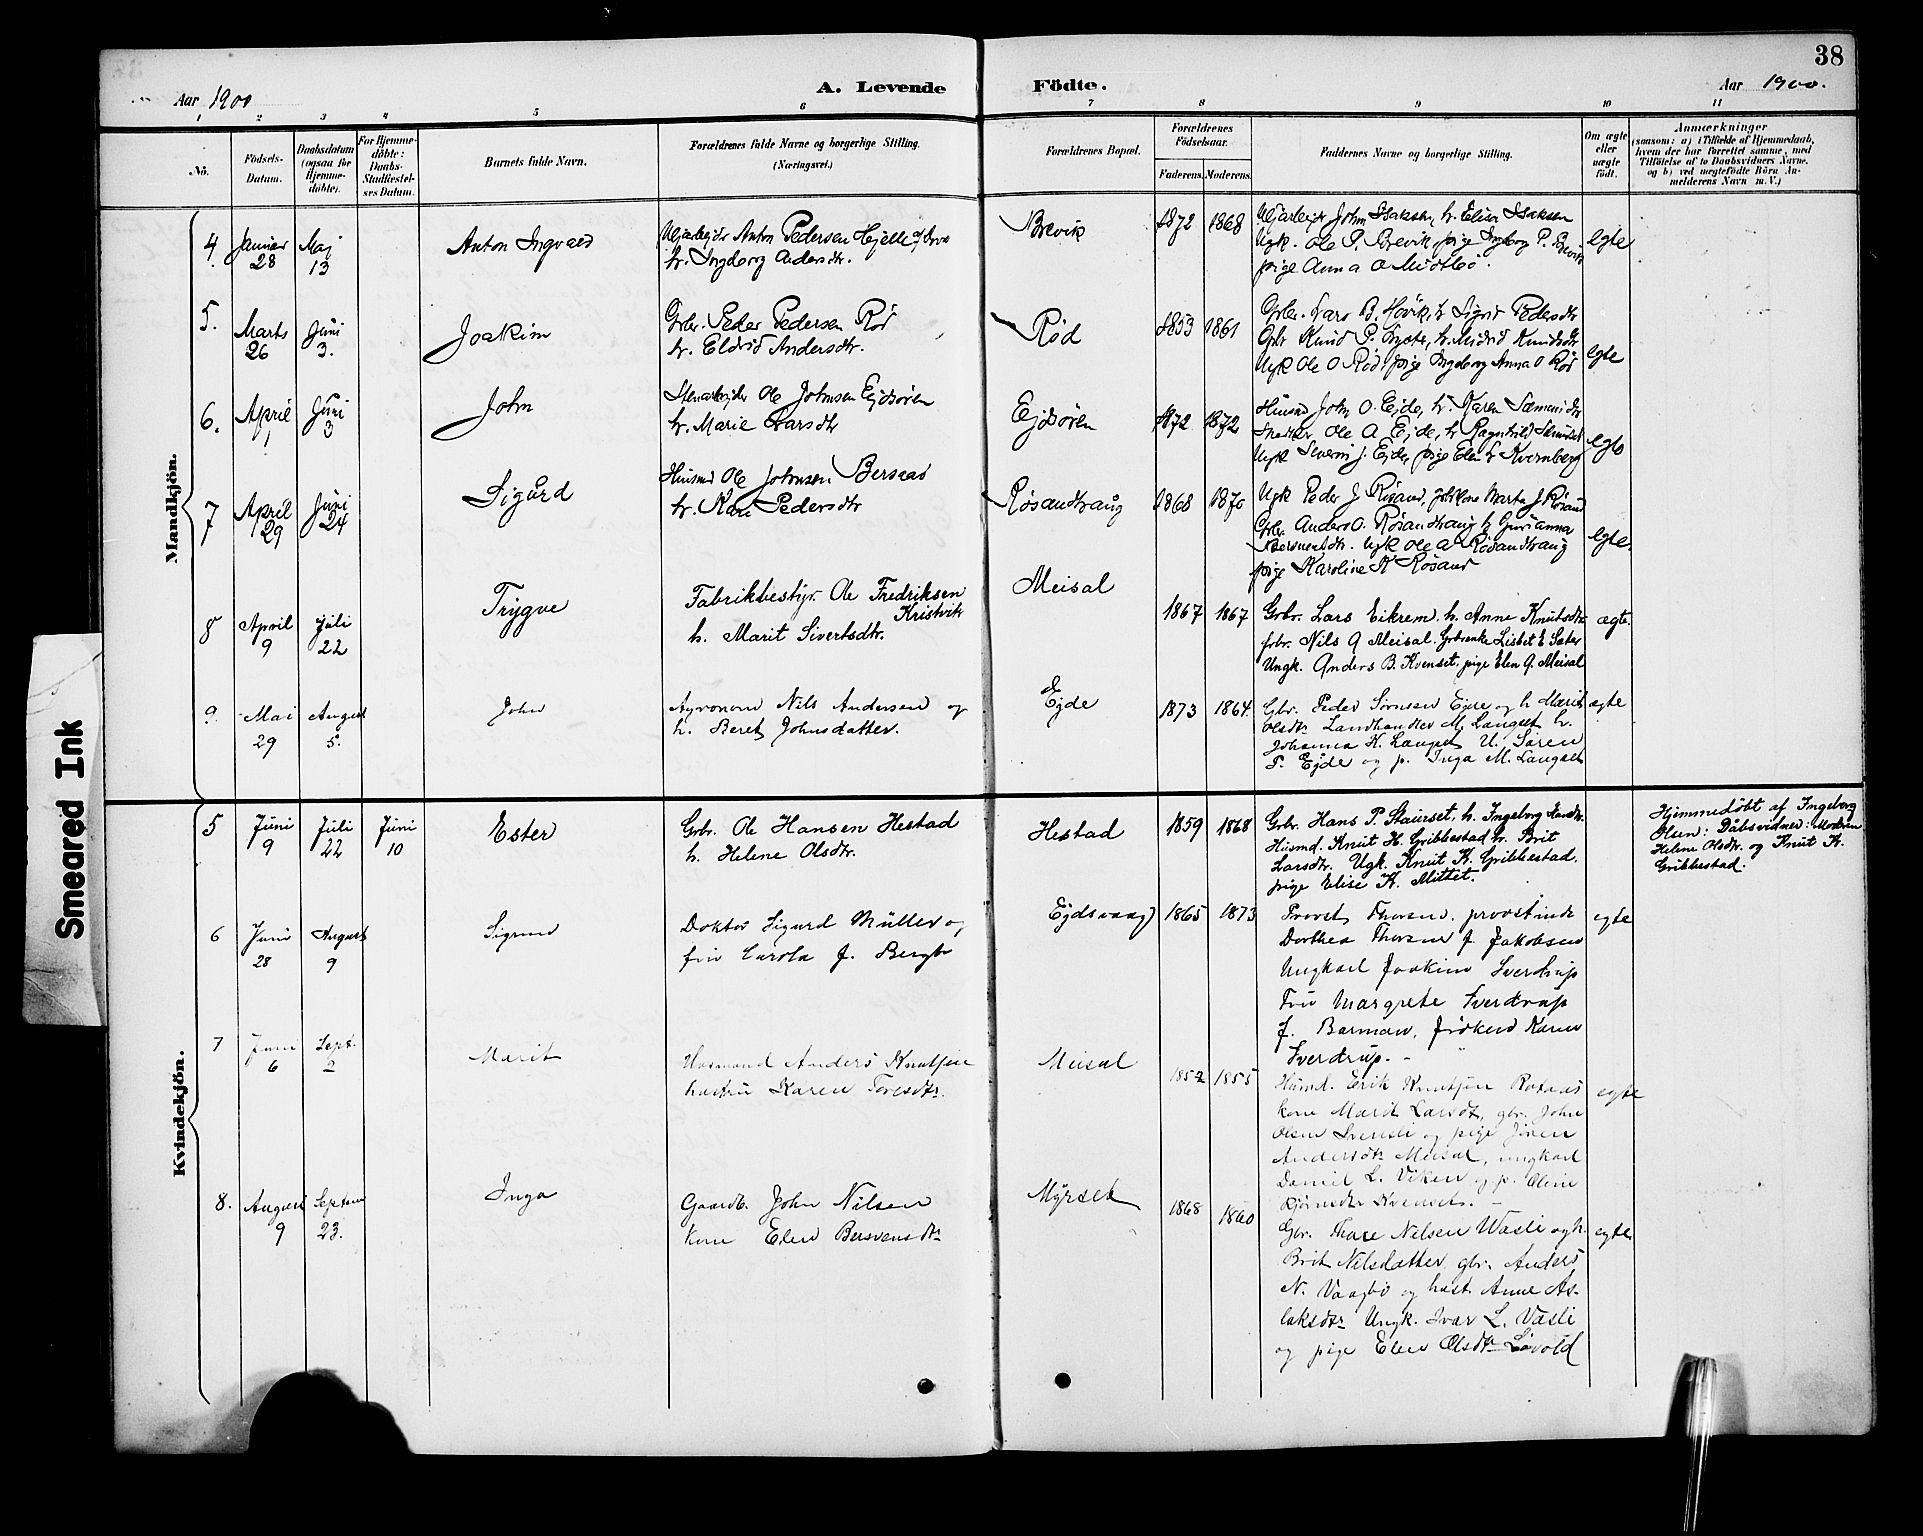 38
Aar 1900
A. Levende Födte.
Aar 1900.
1 2 3 4 5 6 7 8 9 10 11
No.
Födsels-
Datum.
Daabsdatum
(ogsaa for
Hjemme-
döbte).
For Hjemme-
döbte:
Daabs-
Stadfæstel-
ses Datum.
Barnets fulde Navn.
Forældrenes fulde Navne og borgerlige Stilling.
(Næringsvei.)
Forældrenes Bopæl.
Forældrenes
Födselsaar.
Faderens. Moderens.
Faddernes Navne og borgerlige Stilling.
Om ægte
eller
uægte
født.
Anmærkninger
(saasom: a) i Tilfælde af Hjemmedaab,
hvem der har forrettet samme, med
Tilföielse af to Daabsvidners Navne,
og b) ved uægtefødte Börn An-
melderens Navn m. V.)
Mandkjön.
4. Januar 28
Maj 13
Anton Ingvald
Anton Pedersen Hjelle
h. Ingeborg Andersdtr.
Brevik
1872 1868
John Isaksen, h. Elise Isaksen
Ugk. Ole P. Brevik, pige Ingeborg P. Brevik
pige Anna O Midtbö.
egte
5. Marts 26
Juni 3.
Joakim
Gbr. Peder Pedersen Rød
h. Eldrid Andersdtr.
Rød
1853 1861
Gbr. Lars B. Høvik, h Sigrid Pedersdtr
Gbr Knud P. h. Midrid Knudsdtr
Ugk Ole O Rød, pige Ingeborg Anna O Rød
egte
6. April 1
Juni 3
John
Stenarbejder Ole Johnsen Ejdsøren
h. Marie Larsdtr
Ejdsøren
1872 1872
Husmd John O. Ejde, h. Karen
Ole A Ejde, h Ragnhild
Ugk Severin J. Ejde, pige Elen L Kvernberg
egte
7 April 29
Juni 24
Sigurd
Husmd Ole Johnsen Bersaas
h. Kari Pedersdtr
Røsandhaug
1868 1870
Ugk Peder J Røsand, Marta J Røsand
Gbr. Anders O. Røsandhaug h Gurianna
Bersvendtr. Ugk Ole A Røsandhaug
pige Karoline K Røsand
egte.
8 April 9
Juli 22
Trygve
Fabrikbestyr. Ole Fredriksen
Kristvik
h. Marit Sivertsdtr.
Meisal
1867 1867
Grbr. Lars Eikrem. h. Anne Knutsdtr
grbr. Nils A Meisal. Grdrenke Lisbet E Sæter
Ungk. Anders B. Kvenset, pige Elen A. Meisal
ægte.
9. Mai 29
August 5.
John
Agronom Nils Andersen og
h. Beret Johnsdatter.
Ejde
1873 1864.
Gbr. Peder Sørnsen Ejde og h Marit
Olsdtr Landhandler M. Langset h.
Johanna K. Langset U. Søren
P. Ejde og p. Inga M. Langset
ægte
Kvindekjön.
5 Juni 9
Juli 22
Juni 10
Ester
Grbr. Ole Hansen Hestad
h. Helene Olsdtr.
Hestad
1859 1868
Grbr. Hans P. Skaurset, h. Ingeborg
Husmd. Knut H. Gribbestad hr. Brit
Larsdtr. Ugk. Knut K. Gribbestad.
pige Elise K. Mittet.
Hjemmedøbt af Ingeborg
Olsen: Dåbsvidner: Moderen
Helene Olsdtr. og Knut K.
Gribbestad.
6 Juni 28
August 9
Sigrund
Doktor Sigurd Müller og
fru Carola f. Bergh
Ejdsvaag
1865 1873
Provst Thoresen, provstinde
Dorthea Thoresen f. Jakobsen
Ungkarl Joakim Sverdrup
Fru Margrete Sverdrup
f. Barman, frøken Karen
Sverdrup. -
egte
7 Juni 6
Sept. 2
Marit
Husmand Anders Knutsen
hustru Karen Toresdtr.
Meisal
1852 1855
Husmd. Erik Knutsen Rotaas
kone Marit Larsdtr, gbr. John
Olsen Svensli og pige
Andersdtr Meisal, ungkarl
Daniel L. Viken og p. Oline
Bjørnsdtr Kvenset. -
egte
8. August 9
Septem 23.
Inga
Gaardb. John Nilsen
kone Elen Bersvensdtr
Myrset
1868 1860
Gbr. Thore Nilsen Wasli og h.
Brit Nilsdatter, gbr. Anders
N. Vaagbø og hust. Anne As-
laksdtr Ungk. Ivar L. Vasli
og pige Elen Olsdtr Løvold
egte
Smeared Ink